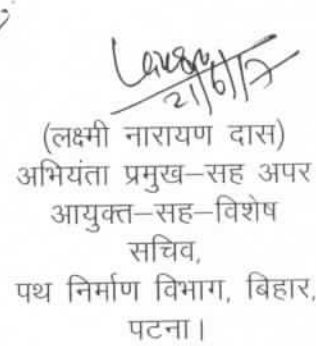 21/6/17
(लक्ष्मी नारायण दास)
अभियंता प्रमुख–सह अपर
आयुक्त–सह–विशेष
सचिव,
पथ निर्माण विभाग, बिहार,
पटना।